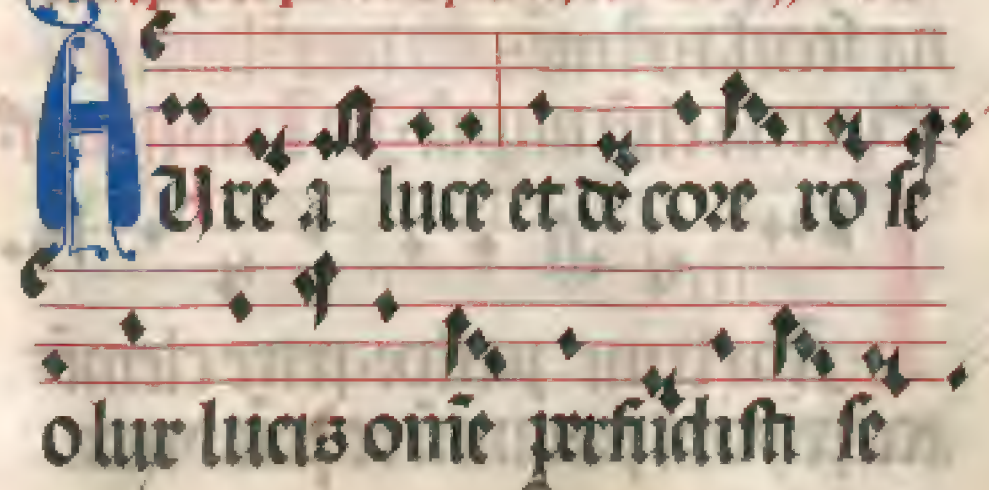 AUrea luce et decore rose
o lux lucis omē perfudisti se